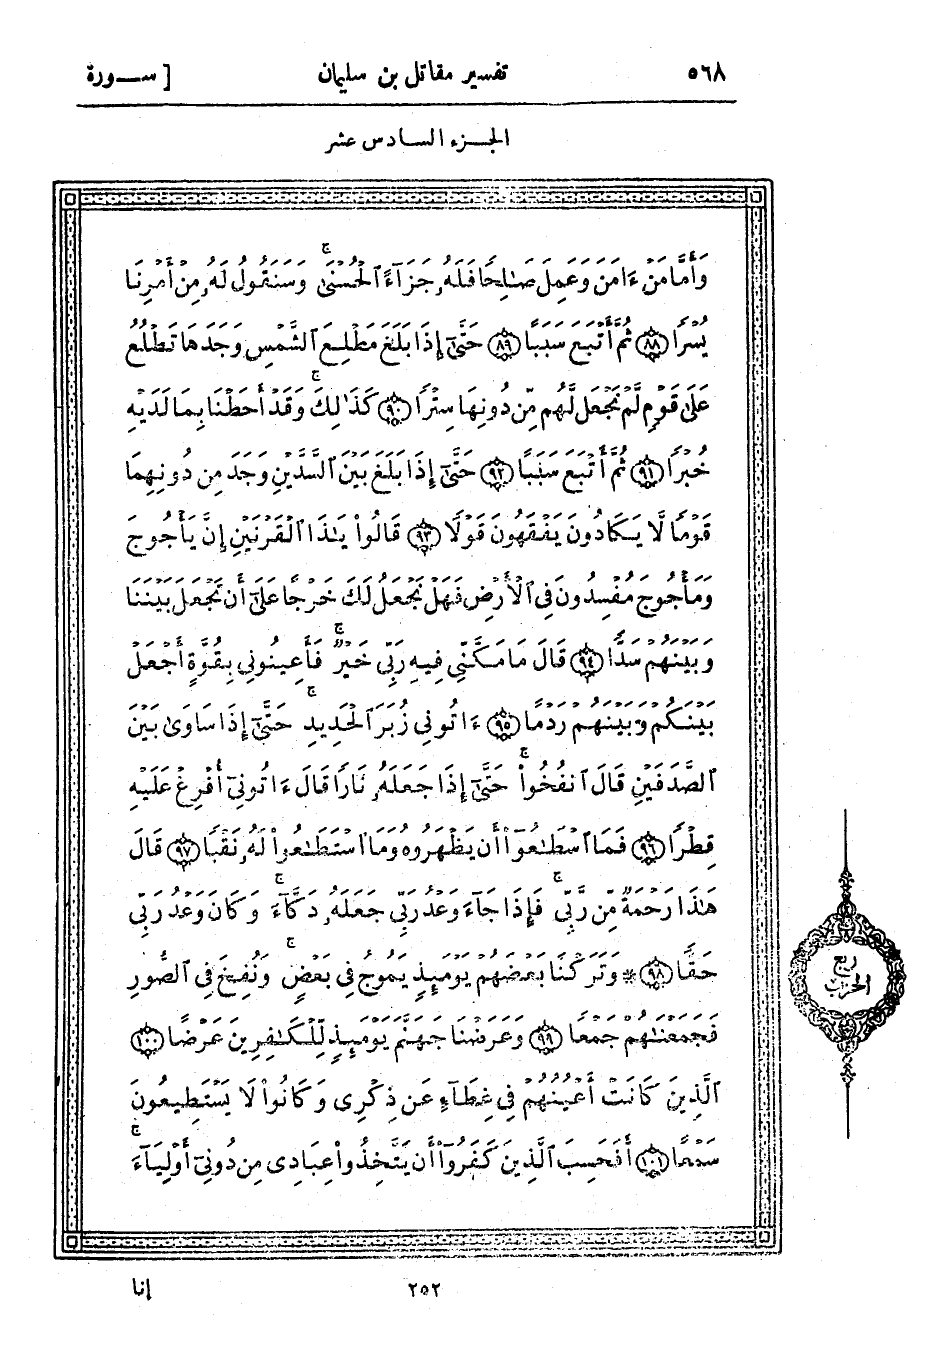 ٥٦٨ تفسير مقاتل بن سليمان [ ســورة
الجــزء السادس عشر
وَأَمَّا مَنْ ءَامَنَ وَعَمِلَ صَٰلِحًا فَلَهُۥ جَزَآءً ٱلْحُسْنَىٰ ۖ وَسَنَقُولُ لَهُۥ مِنْ أَمْرِنَا
يُسْرًا ﴿٨٨﴾ ثُمَّ أَتْبَعَ سَبَبًا ﴿٨٩﴾ حَتَّىٰٓ إِذَا بَلَغَ مَطْلِعَ ٱلشَّمْسِ وَجَدَهَا تَطْلُعُ
عَلَىٰ قَوْمٍ لَّمْ نَجْعَل لَّهُم مِّن دُونِهَا سِتْرًا ﴿٩٠﴾ كَذَٰلِكَ ۚ وَقَدْ أَحَطْنَا بِمَا لَدَيْهِ
خُبْرًا ﴿٩١﴾ ثُمَّ أَتْبَعَ سَبَبًا ﴿٩٢﴾ حَتَّىٰٓ إِذَا بَلَغَ بَيْنَ ٱلسَّدَّيْنِ وَجَدَ مِن دُونِهِمَا
قَوْمًا لَّا يَكَادُونَ يَفْقَهُونَ قَوْلًا ﴿٩٣﴾ قَالُوا۟ يَٰذَا ٱلْقَرْنَيْنِ إِنَّ يَأْجُوجَ
وَمَأْجُوجَ مُفْسِدُونَ فِى ٱلْأَرْضِ فَهَلْ نَجْعَلُ لَكَ خَرْجًا عَلَىٰٓ أَن تَجْعَلَ بَيْنَنَا
وَبَيْنَهُمْ سَدًّا ﴿٩٤﴾ قَالَ مَا مَكَّنِّى فِيهِ رَبِّى خَيْرٌ ۚ فَأَعِينُونِى بِقُوَّةٍ أَجْعَلْ
بَيْنَكُمْ وَبَيْنَهُمْ رَدْمًا ﴿٩٥﴾ ءَاتُونِى زُبَرَ ٱلْحَدِيدِ ۖ حَتَّىٰٓ إِذَا سَاوَىٰ بَيْنَ
ٱلصَّدَفَيْنِ قَالَ ٱنفُخُوا۟ ۖ حَتَّىٰٓ إِذَا جَعَلَهُۥ نَارًا قَالَ ءَاتُونِىٓ أُفْرِغْ عَلَيْهِ
قِطْرًا ﴿٩٦﴾ فَمَا ٱسْطَٰعُوٓا۟ أَن يَظْهَرُوهُ وَمَا ٱسْتَطَٰعُوا۟ لَهُۥ نَقْبًا ﴿٩٧﴾ قَالَ
هَٰذَا رَحْمَةٌ مِّن رَّبِّى ۖ فَإِذَا جَآءَ وَعْدُ رَبِّى جَعَلَهُۥ دَكَّآءَ ۖ وَكَانَ وَعْدُ رَبِّى
حَقًّا ﴿٩٨﴾ * وَتَرَكْنَا بَعْضَهُمْ يَوْمَئِذٍ يَمُوجُ فِى بَعْضٍ ۖ وَنُفِخَ فِى ٱلصُّورِ
فَجَمَعْنَٰهُمْ جَمْعًا ﴿٩٩﴾ وَعَرَضْنَا جَهَنَّمَ يَوْمَئِذٍ لِّلْكَٰفِرِينَ عَرْضًا ﴿١٠٠﴾
ٱلَّذِينَ كَانَتْ أَعْيُنُهُمْ فِى غِطَآءٍ عَن ذِكْرِى وَكَانُوا۟ لَا يَسْتَطِيعُونَ
سَمْعًا ﴿١٠١﴾ أَفَحَسِبَ ٱلَّذِينَ كَفَرُوٓا۟ أَن يَتَّخِذُوا۟ عِبَادِى مِن دُونِىٓ أَوْلِيَآءَ ۚ
ربع
الحزب
٢٥٢ إنا